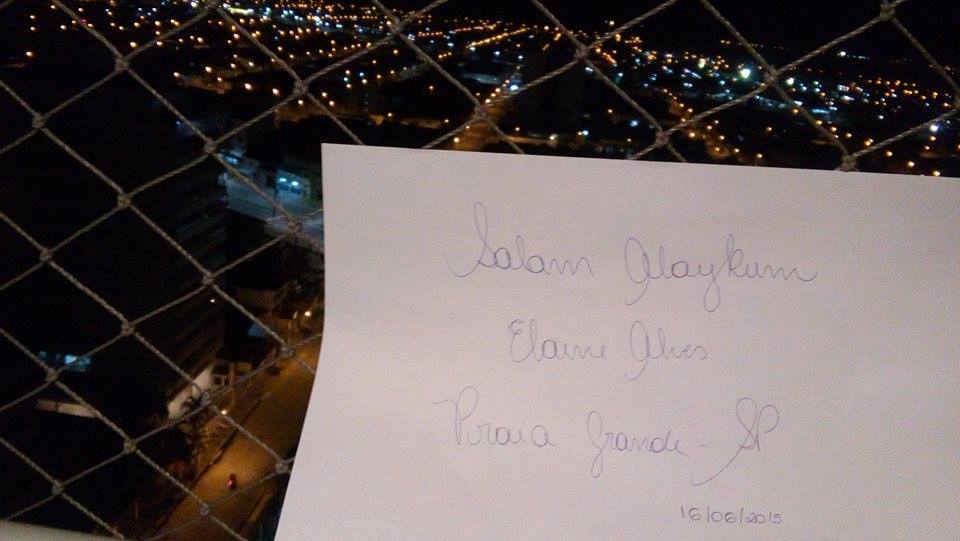 Salam Alaykum
Elaine Alves
Praia Grande - SP
16/06/2015